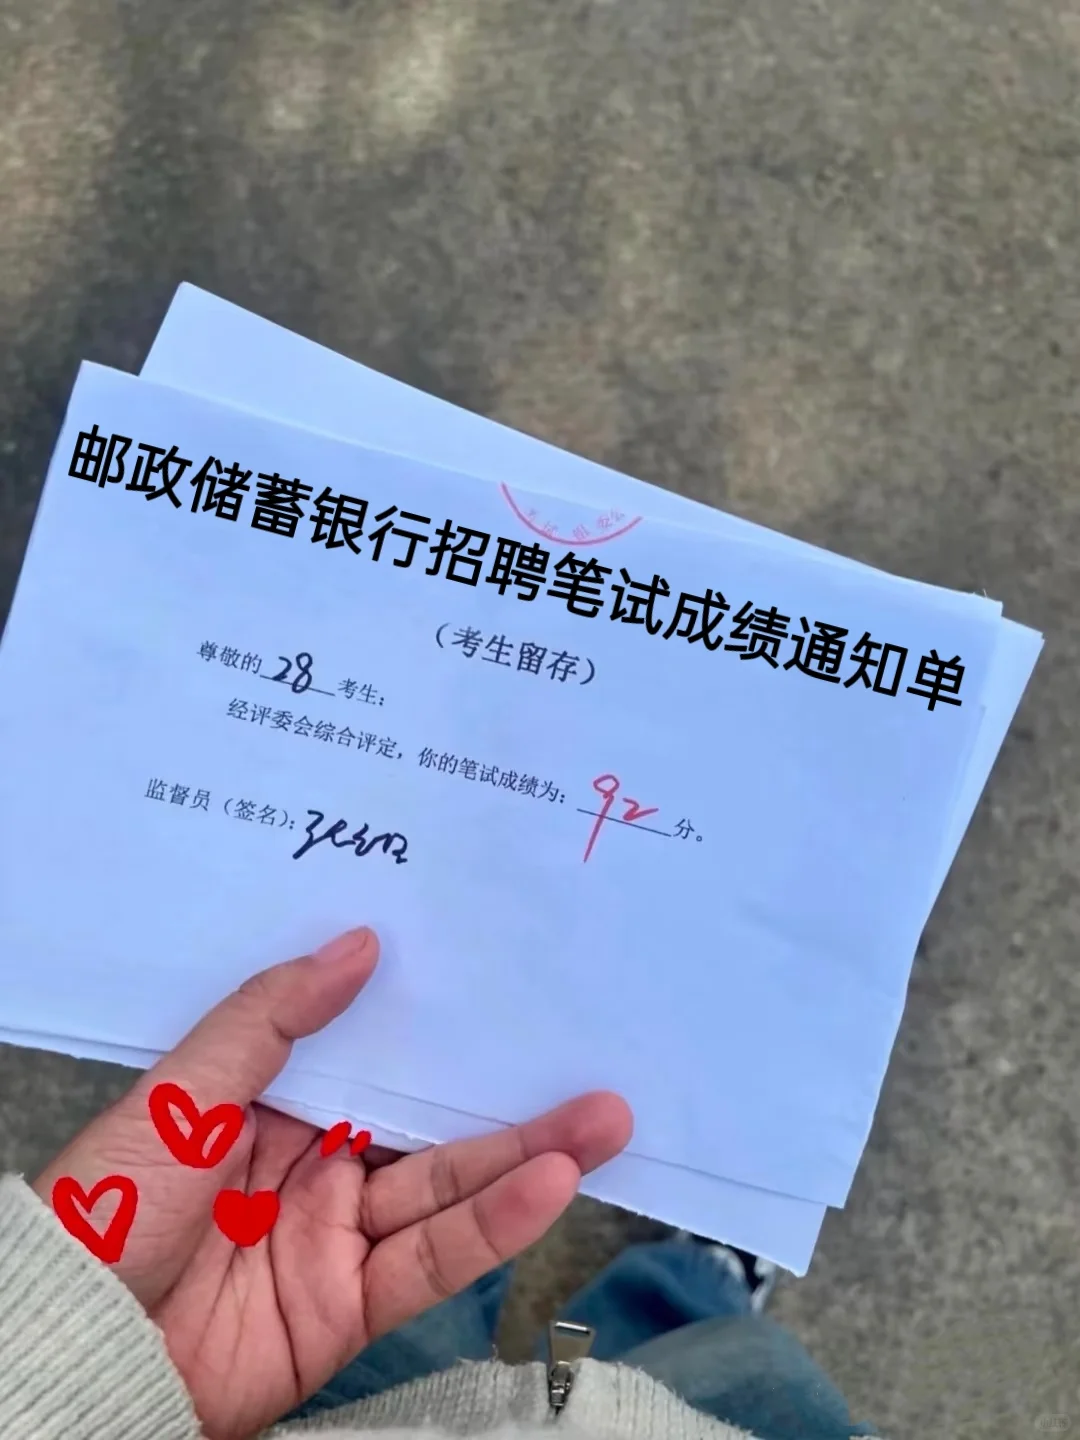 邮政储蓄银行招聘笔试成绩通知单
考试招委会
（考生留存）
尊敬的 28 考生：
经评委会综合评定，你的笔试成绩为： 92 分。
监督员（签名）：